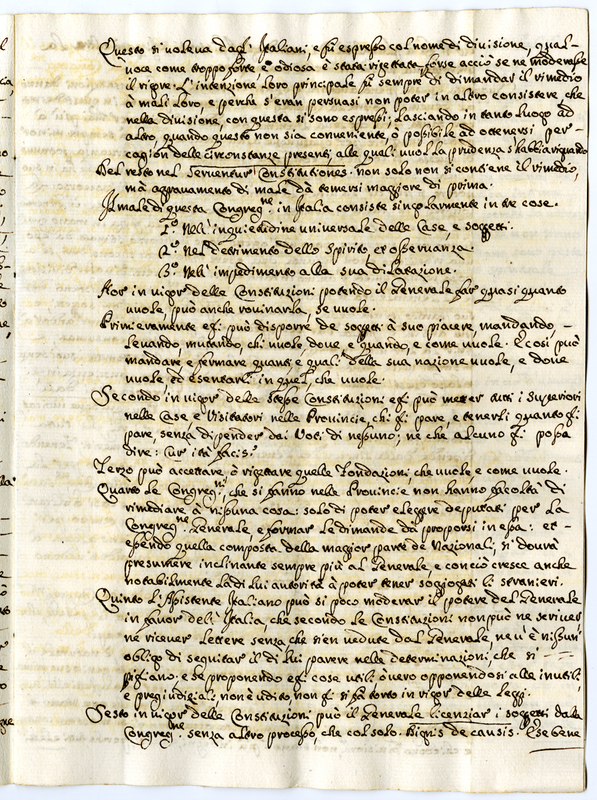 Questo si voleva dagl' Italiani, e fù espresso col nome di divisione, qual
voce come troppo forte, e odiosa è stata rigettata forse acciò se ne moderasse
il vigore. L'intenzione loro principale fù sempre di dimandar il rimedio
à mali loro, e perchè s'eran persuasi non poter in altro consistere che
nella divisione, con questa si sono espressi; lasciando in tanto luogo ad
altro, quando questo non sia conveniente, ò possibile ad ottenersi per
cagion delle circonstanze presenti, alle quali vuol la prudenza s'habbia riguardo
Del resto nel Serventur Constitutiones. non solo non si contiene il rimedio,
mà aggravamento di male dà temersi maggiore di prima.
Il male di questa Congreg.ne in Italia consiste singolarmente in tre cose.
1.o Nell' inquietudine universale delle Case, e soggetti.
2.o Nel detrimento dello Spirito et osservanza.
3.o Nell' impedimento alla sua dilatazione.
Hor in vigor delle Constituzioni potendo il Generale far quasi quanto
vuole, può anche rovinarla, se vuole.
Primieramente egli può disporre de soggetti à suo piacere, mandando,
levando, mutando, chi vuole, dove, e quando, e come vuole. E così può
mandare e fermare quanti, e quali della sua nazione vuole, e dove
vuole, ed esentarli in quel, che vuole.
Secondo in vigor delle stesse Constituzioni egli può metter tutti i Superiori
nelle Case e Visitatori nelle Provincie, chi gli pare, e tenerli quanto gli
pare, senza dipender dai Voti di nessuno; ne che alcuno gli possa
dire: Cur ità facis?
Terzo può accettare, ò rigettare quelle Fondazioni, che vuole, e come vuole.
Quarto le Congreg.ni, che si fanno nelle Provincie non hanno facoltà di
rimediare à nissuna cosa: solo di poter eleggere deputati per la
Congreg.ne Generale, e formar le dimande dà proporsi in essa: et
essendo quella composta della maggior parte de Nazionali, si dovrà
presumere inclinante sempre più al Generale, e con ciò cresce anche
notabilmente la di lui autorità à poter tener soggiogati li stranieri.
Quinto L'Assistente Italiano può sì poco moderar il potere del Generale
in favor dell' Italia, che secondo le Constituzioni non può ne scriver
ne ricever lettere senza che sien vedute dal Generale, ne v'è nissun
obligo di seguitar il di lui parere nelle determinazioni, che si
pigliano; e se proponendo egli cose utili, ò vero opponendosi alle inutili,
e pregiudiziali, non è udito, non gli si fà torto in vigor delle Leggi.
Sesto in vigor delle Constituzioni, può il Generale licenziar i soggetti dalla
Congreg.ne senza altro processo, che col solo. Dignis de causis. E se bene